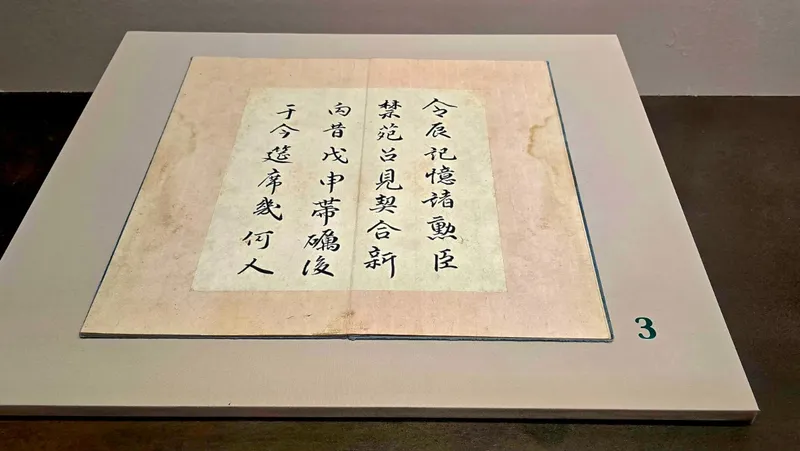 令辰記憶諸勲臣
禁苑召見契合新
向昔戊申帶礪後
于今筵席幾何人
3